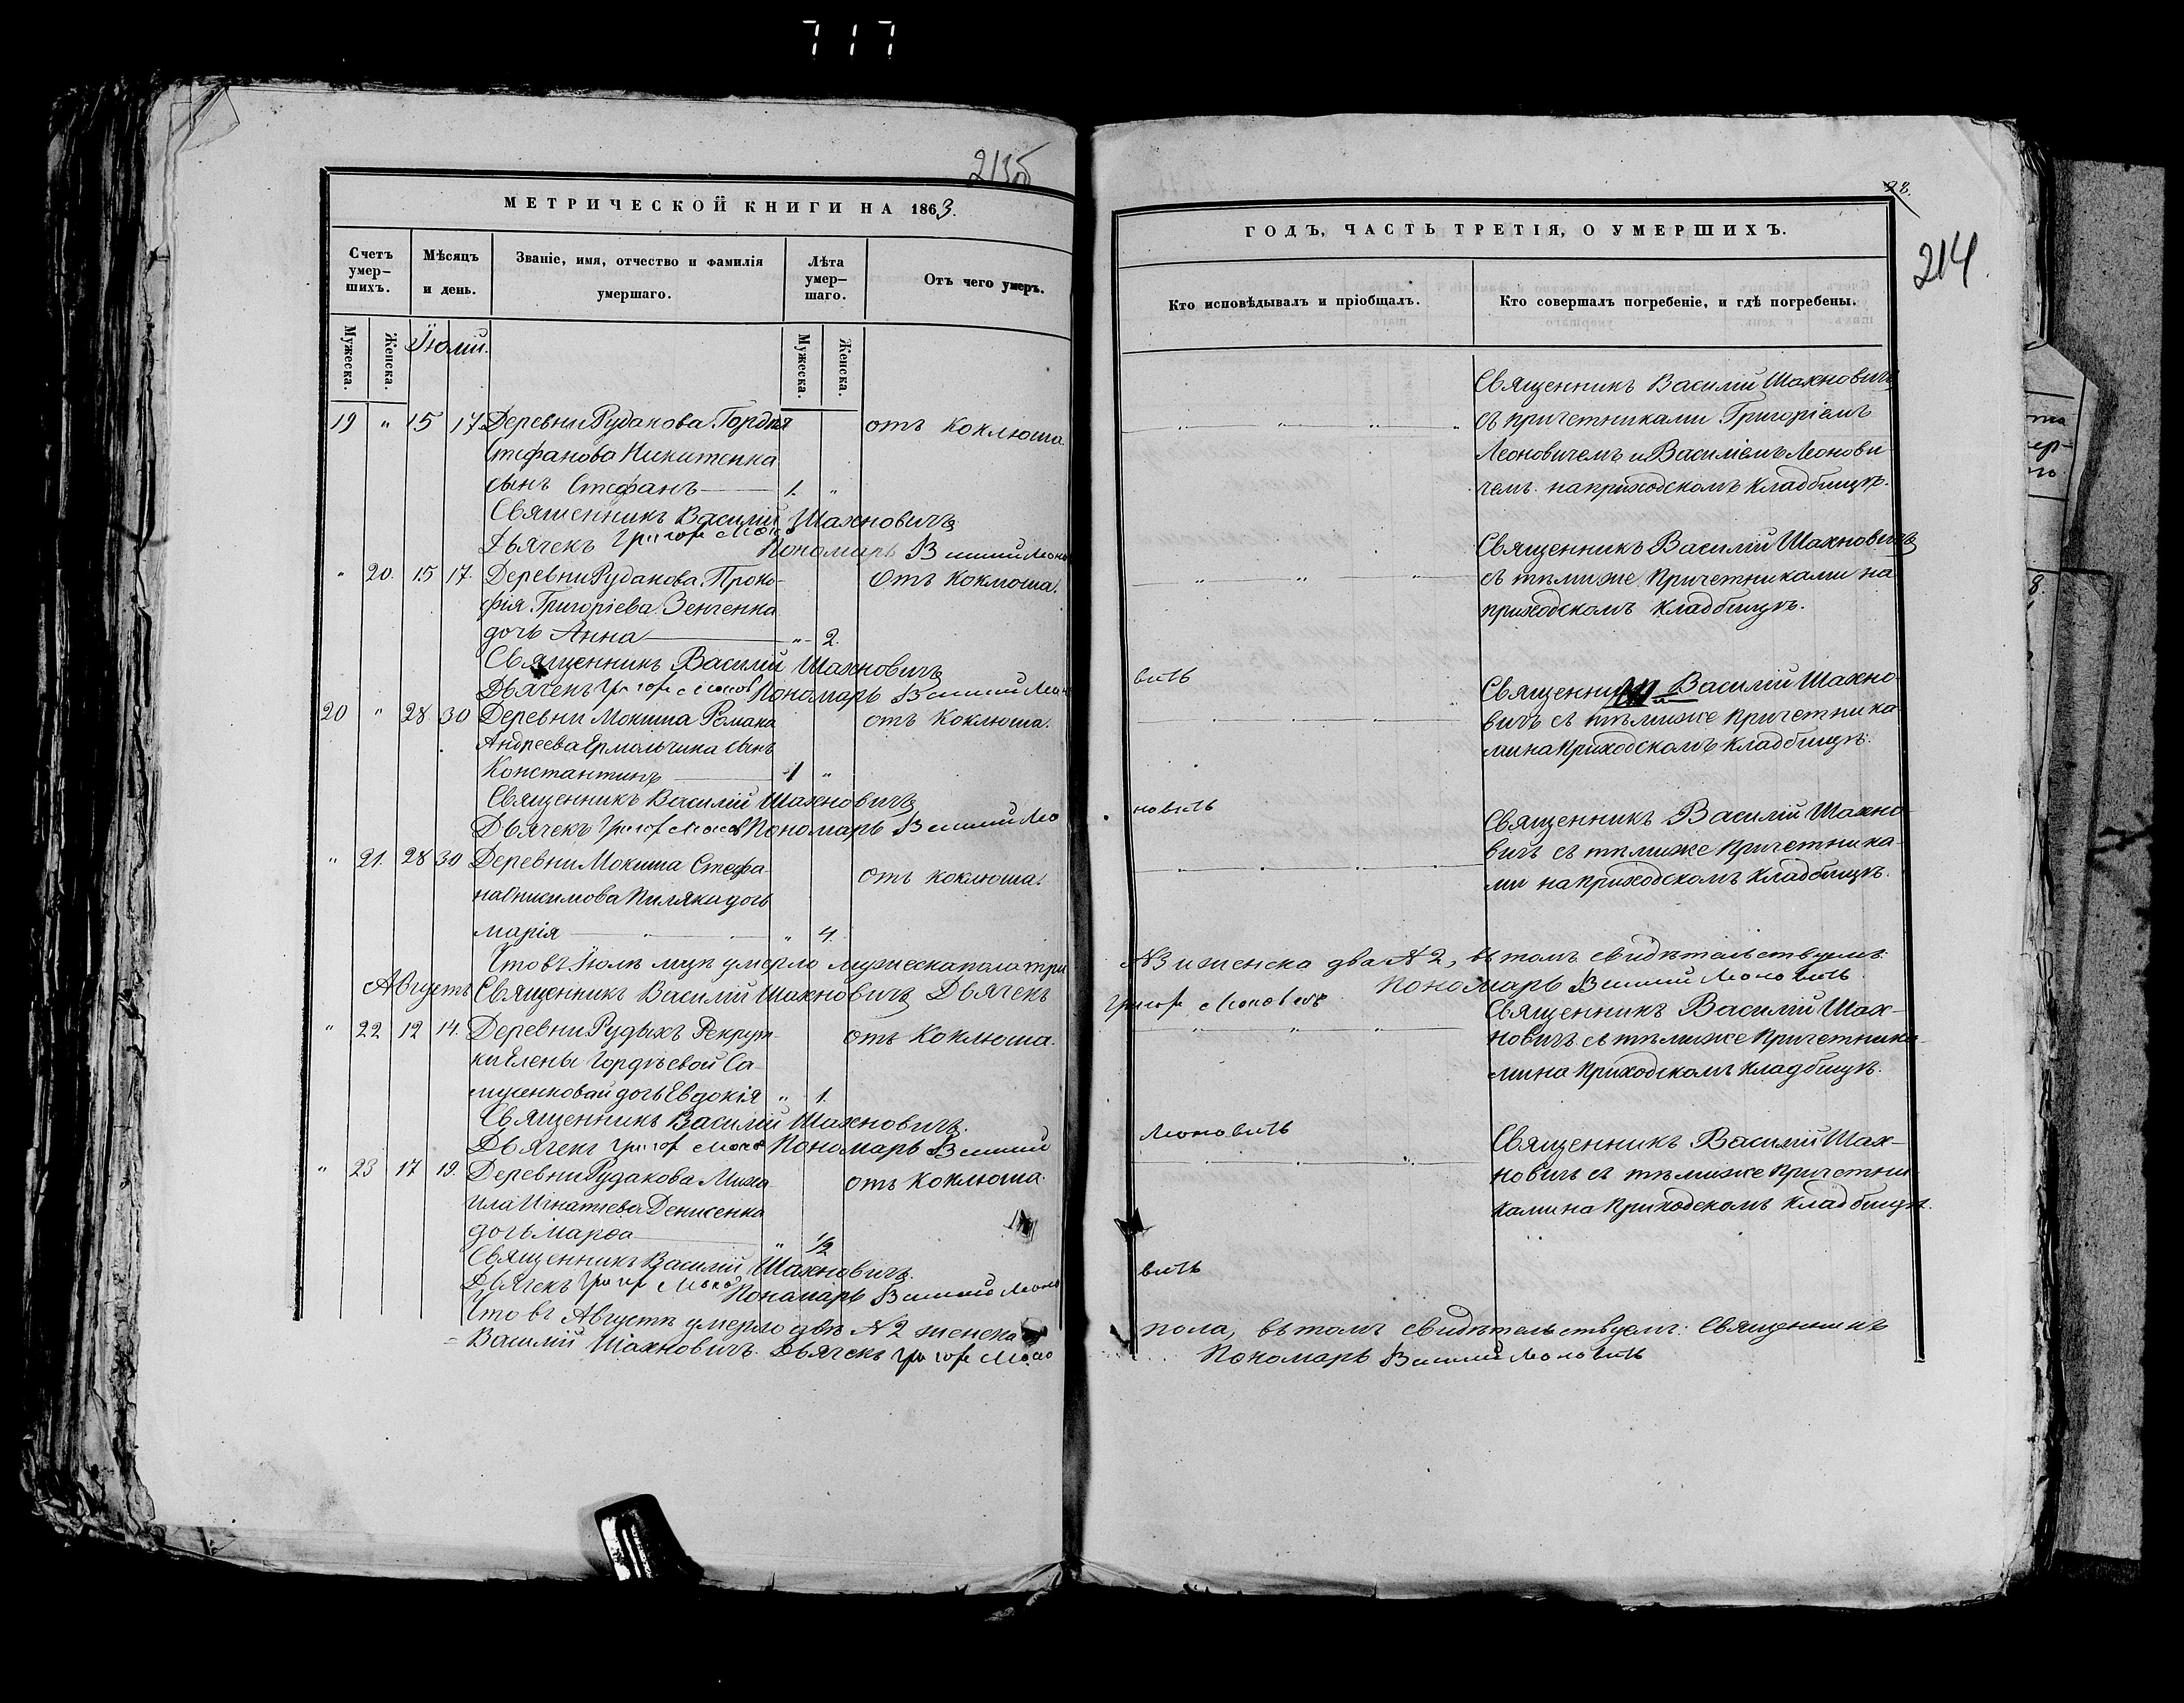 717
213об
МЕТРИЧЕСКОЙ КНИГИ НА 1863.
Счетъ умер-шихъ.
Мѣсяцъ и день.
Званіе, имя, отчество и фамилія умершаго.
Лѣта умер-шаго.
Отъ чего умеръ.
Мужеска.
Женска.
Іюлій.
Мужеска.
Женска.
19 " 15 17 Деревни Рудакова Гордѣя отъ коклюша
Стефанова Никитенка
сынъ Стефанъ 1. "
Священникъ Василій Шахновичъ
Дьячекъ Григор Леоно Пономарь Василий Леоно
" 20. 15 17. Деревни Рудакова Проко- отъ коклюша.
фія Григоріева Зенченка
дочь Анна " 2.
Священникъ Василій Шахновичъ
Дьячекъ Григор Леонов Пономарь Василий Леон
20 " 28 30 Деревни Мокиша Романа отъ коклюша.
Андреева Ермольчика сынъ
Константинъ 1 "
Священникъ Василій Шахновичъ
Дьячекъ Григор Леонов Пономарь Василий Лео
" 21. 28 30 Деревни Мокиша Стефа- отъ коклюша.
на Онисимова Пиляки дочь
Марія " 4.
Что въ Іюлѣ мцѣ умерло мужеска пола три
Августъ Священникъ Василій Шахновичъ Дьячекъ
" 22 12 14. Деревни Рудыхъ Рекрут- отъ коклюша.
ки Елены Гордѣевой Са-
мусенковой дочь Евдокія " 1.
Священникъ Василій Шахновичъ.
Дьячекъ Григор Леонов Пономарь Василий
" 23 17 19. Деревни Рудакова Миха- отъ коклюша.
ила Игнатіева Денисенка
дочь Марѳа " 1/2
Священникъ Василій Шахновичъ.
Дьячекъ Григор Леоно Пономарь Василий Леоно
Что въ Августѣ умерло двѣ №2 женска
Василій Шахновичъ. Дьячекъ Григор Леоно
28.
214
ГОДЪ, ЧАСТЬ ТРЕТІЯ, О УМЕРШИХЪ.
Кто исповѣдывалъ и пріобщалъ.
Кто совершалъ погребеніе, и гдѣ погребены.
Священникъ Василій Шахновичъ
съ причетниками Григоріемъ
Леоновичемъ и Василіемъ Леонови-
чемъ на приходскомъ кладбищѣ.
Священникъ Василій Шахновичъ
съ тѣми же причетниками на
приходскомъ кладбищѣ.
вичь
Священникъ Василій Шахно-
вичъ съ тѣми же причетника-
ми на приходскомъ кладбищѣ.
новичь
Священникъ Василій Шахно-
вичъ съ тѣми же причетника-
ми на приходскомъ кладбищѣ.
№3 и женска два №2, въ томъ свидѣтельствуемъ:
Григор Леоновичъ Пономарь Василий Леоновичь
Священникъ Василій Шах-
новичъ съ тѣми же причетника-
ми на приходскомъ кладбищѣ.
Леоновичь
Священникъ Василій Шах-
новичъ съ тѣми же причетни-
ками на приходскомъ кладбищѣ.
вичь
пола, въ томъ свидѣтельствуемъ: Священникъ
Пономарь Василий Леоновичь